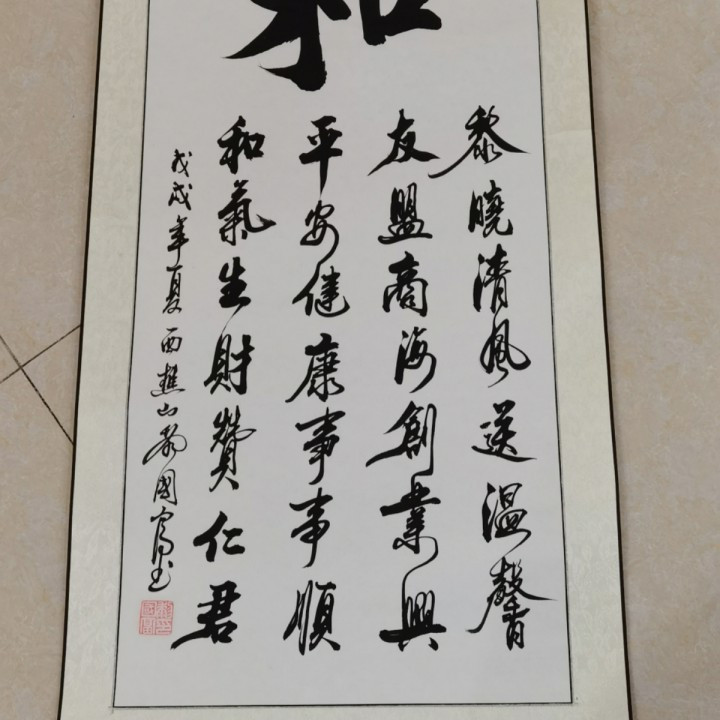 和
黎曉清風送溫馨
友盟商海創業興
平安健康事事順
和氣生財贊仁君
戊戌年夏西樵山
國